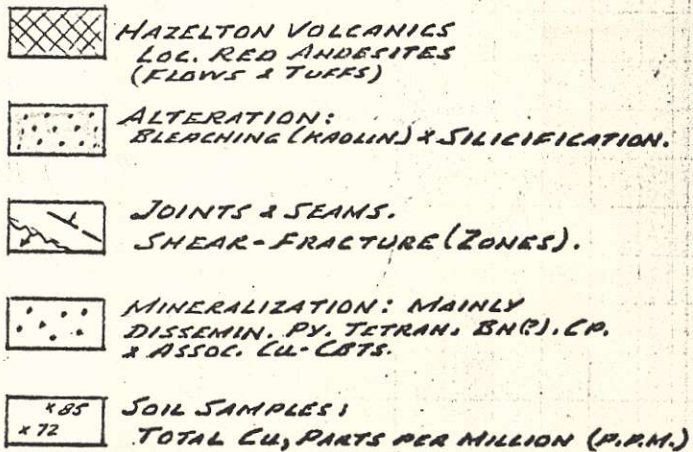 HAZELTON VOLCANICS
LOC. RED ANDESITES
(FLOWS & TUFFS)
ALTERATION:
BLEACHING (KAOLIN) & SILICIFICATION.
JOINTS & SEAMS.
SHEAR-FRACTURE (ZONES).
MINERALIZATION: MAINLY
DISSEMIN. PY. TETRAH. BN(?). CP.
& ASSOC. CU-CBTS.
x 85
x 72
SOIL SAMPLES:
TOTAL CU, PARTS PER MILLION (P.P.M.)